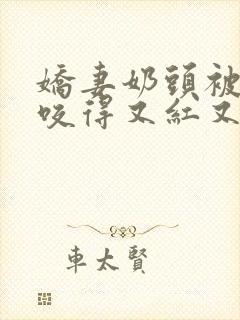 嬌妻奶頭被
咬得又紅又
車太賢